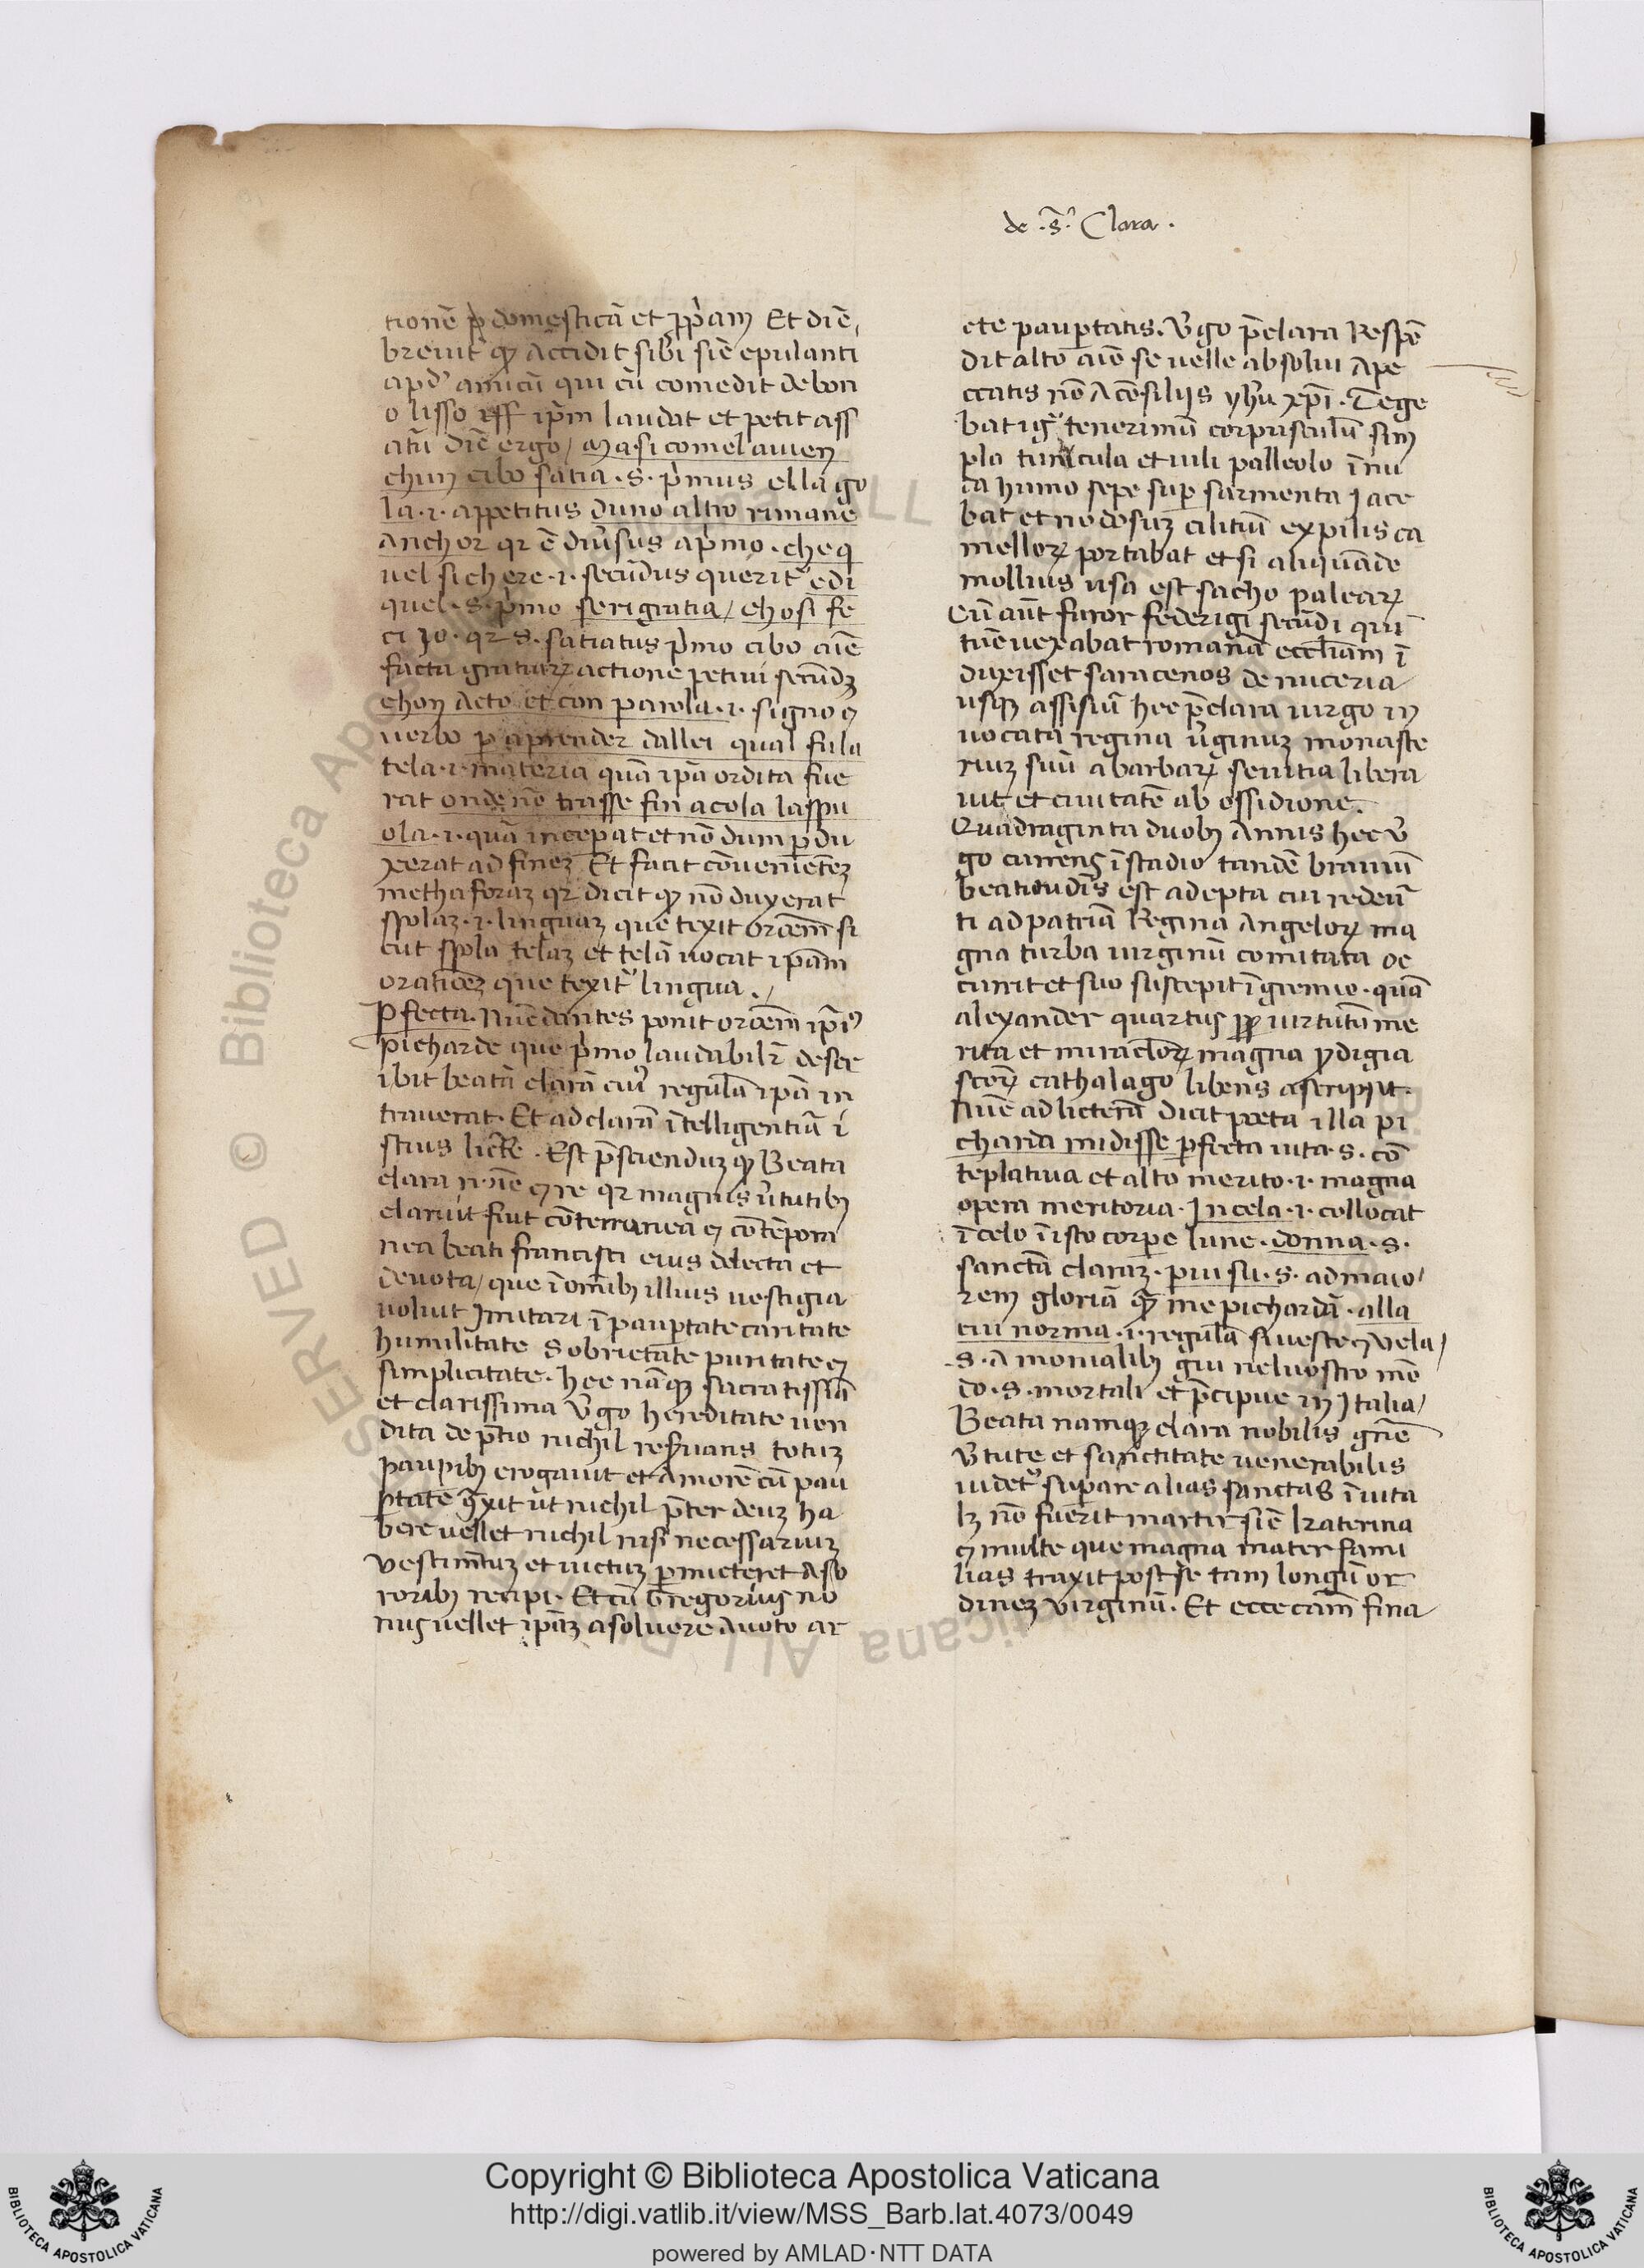 de .s̄. Clara .
tionē p domesticā et ꝓpāꝫ Et diē,
breuit̄ ꝙ accidit sibi sic̄ epulanti
apd' amicū qui cū comedit de bon
o lisso iſſ ip̄m laudat et petit ass
atū dic̄ ergo / Ma si comel auien
chun cibo satia . s . p̄mus ella go
la .i. appetitus duno altro rimane
Anchor qr ē diūsus ap̄mo . che q
uel si chere .i. secūdus querit' e di
quel . s . p̄mo se rigratia / chosi fe
ci Jo . qr s . satiatus p̄mo cibo aīe
facta gratiaꝝ actione petiui secūdꝫ
chon acto et con parola .i. signo ⁊
uerbo p aprender dallei qual fu la
tela .i. materia quā ip̄a ordita fue
rat onde nō trasse fin a cola la spu
ola .i. quā inceperat et nō dum ꝑdu
xerat ad fineꝫ Et facit cōueniēteꝫ
methaforaꝫ qr dicit ꝙ nō duxerat
spolaꝫ .i. linguaꝫ que texit orōem̄ si
cut spola telaꝫ et telā uocat ip̄am
orationeꝫ que texit' lingua .
Pfecta . Nūc dantes ponit orōem̄ ip̄i'
picharde que p̄mo laudabilr̄ descr
ibit beatā clarā cui' regulā ip̄a in
trauerat . Et ad clarā ītelligentiā i
stius lictē . Est p̄sciendūꝫ ꝙ Beata
clara n̄oīe ⁊ re qr magnis ūtutibꝫ
claruit fuit cōterranea ⁊ cōtēpora
nea beati francisci eius delecta et
deuota / que ī omībꝫ illius uestigia
uoluit Jmitari ī paupertate caritate
humilitate sobrietate puritate ⁊
simplicitate . hec nāqꝫ sacratissīa
et clarissima Ūgo hereditate uen
dita de p̄tio nichil reseruans totuꝫ
pauperibꝫ erogauit et Amorē cū pau
ptate ūxit ut nichil p̄ter deuꝫ ha
bere uellet nichil nisi necessariuꝫ
Vestimētuꝫ et uictuꝫ ꝑmicteret Aso
roribꝫ recipi . Et cū Gregorius no
nus uellet ip̄aꝫ asoluere Auoto ar
cte paupertatis . Ūgo p̄clara Respō
dit alto aīe se uelle absolui Ape
ccatis nō Acōsilijs yhū xp̄i . Tege
bat igr̄ tenerimū corpusculū sim
pla tunicula et uili palleolo ī nu
da humo sepe sup sarmenta Jace
bat et nodosuꝫ cilitiū ex pilis ca
melloꝝ portabat et si aliquādo
mollius usa est sacho palearꝝ
Cū aūt furor federigi secūdi qui
tūc uexabat romanā ecclīam ī
duxisset saracenos de nuceria
usqꝫ assisiū hec p̄clara uirgo in
uocata regina ūginuꝫ monaste
riuꝫ suū abarbaꝝ seuitia libera
uit et ciuitatē ab ossidione .
Quadraginta duobꝫ Annis hec ū
go currens ī stadio tandē brauiū
beatitudīs est adepta cui redeū
ti ad patriā Regina Angeloꝝ ma
gna turba uirginū comitata oc
currit et suo suscepit ī gremio . quā
alexander quartus ꝓꝓ uirtutum me
rita et miraclorꝝ magna ꝓdigia
scōꝝ cathalago libens ascripsit .
Nūc ad licterā dicit poeta illa pi
charda mi disse ꝑfecta uita . s . cō
teplatiua et alto merito .i. magna
opera meritoria . Jncela .i. collocat
ī celo ī isto corpe lune . donna . s .
sanctā claraꝫ . piu su . s . ad maio
rem gloriā ꝙ̄ me pichardā . alla
cui norma .i. regulā si ueste ⁊ uela /
. s . A monialibꝫ giu nel uostro mō
do . s . mortali et p̄cipue in Jtalia /
Beata namqꝫ clara nobilis gn̄e
ūtute et sanctitate uenerabilis
uidet' supare alias sanctas ī uita
lꝫ nō fuerit martir sic̄ katerina
⁊ multe que magna mater fami
lias traxit post se tam longū or
dineꝫ Virginū . Et ecce cām̄ fina
Copyright © Biblioteca Apostolica Vaticana
http://digi.vatlib.it/view/MSS_Barb.lat.4073/0049
powered by AMLAD·NTT DATA
BIBLIOTECA APOSTOLICA VATICANA
BIBLIOTECA APOSTOLICA VATICANA